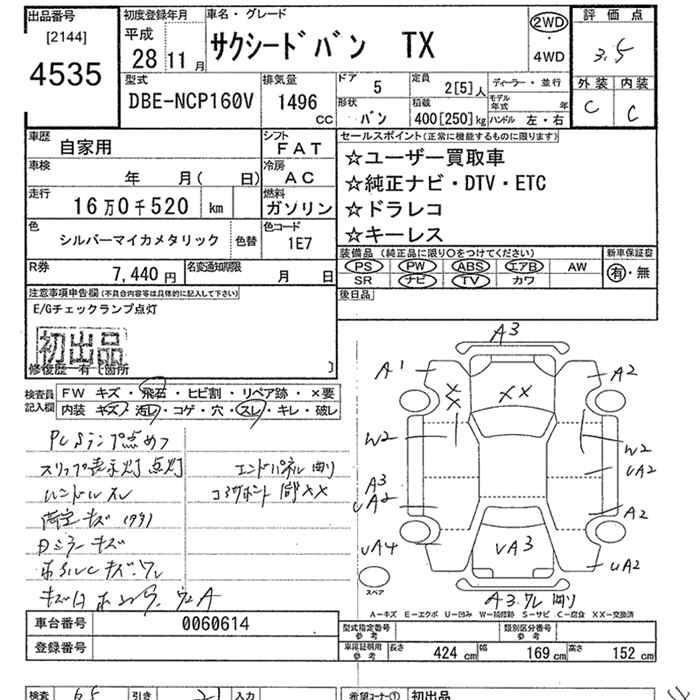 出品番号
[2144]
4535
初度登録年月
平成
28 11月
車名・グレード
サクシードバン TX
2WD
・
4WD
評価点
3.5
外装 内装
C C
型式
DBE-NCP160V
排気量
1496 CC
ドア 5
形状 バン
定員 2[5]人
積載 400[250]kg
ディーラー・並行
モデル年式 年
ハンドル 左・右
車歴 自家用
シフト FAT
車検 年 月( 日)
冷房 AC
走行 16万0千520 km
燃料 ガソリン
色 シルバーマイカメタリック 色替
色コード 1E7
R券 7,440円
名変通知期限 月 日
セールスポイント(正常に機能するものに限ります)
☆ユーザー買取車
☆純正ナビ・DTV・ETC
☆ドラレコ
☆キーレス
装備品(純正品に限り○をつけてください)
PS PW ABS エアB AW
SR ナビ TV カワ
新車保証書
有・無
後日品
注意事項申告欄(不具合内容等は具体的に記入して下さい)
E/Gチェックランプ点灯
初出品
修復歴一有[箇所 ]
検査員記入欄
FW キズ・飛石・ヒビ割・リペア跡・×要
内装 キズ・汚レ・コゲ・穴・スレ・キレ・破レ
スリップ表示灯 点灯
ハンドルスレ
キズ
Dミラーキズ
エンドパネル
コアサポート
XX
A3
A1
A2
XX
XX
W2
W2
UA2
A3
UA2
A2
UA4
UA3
UA2
A3.
スペア
A-キズ E-エクボ U-凹み W-補修跡 S-サビ C-腐食 XX-交換済
車台番号 0060614
登録番号
型式指定番号 参考
類別区分番号 参考
車庫証明用 参考 長さ 424 cm 幅 169 cm 高さ 152 cm
検査
引き
入力
希望コーナー① 初出品